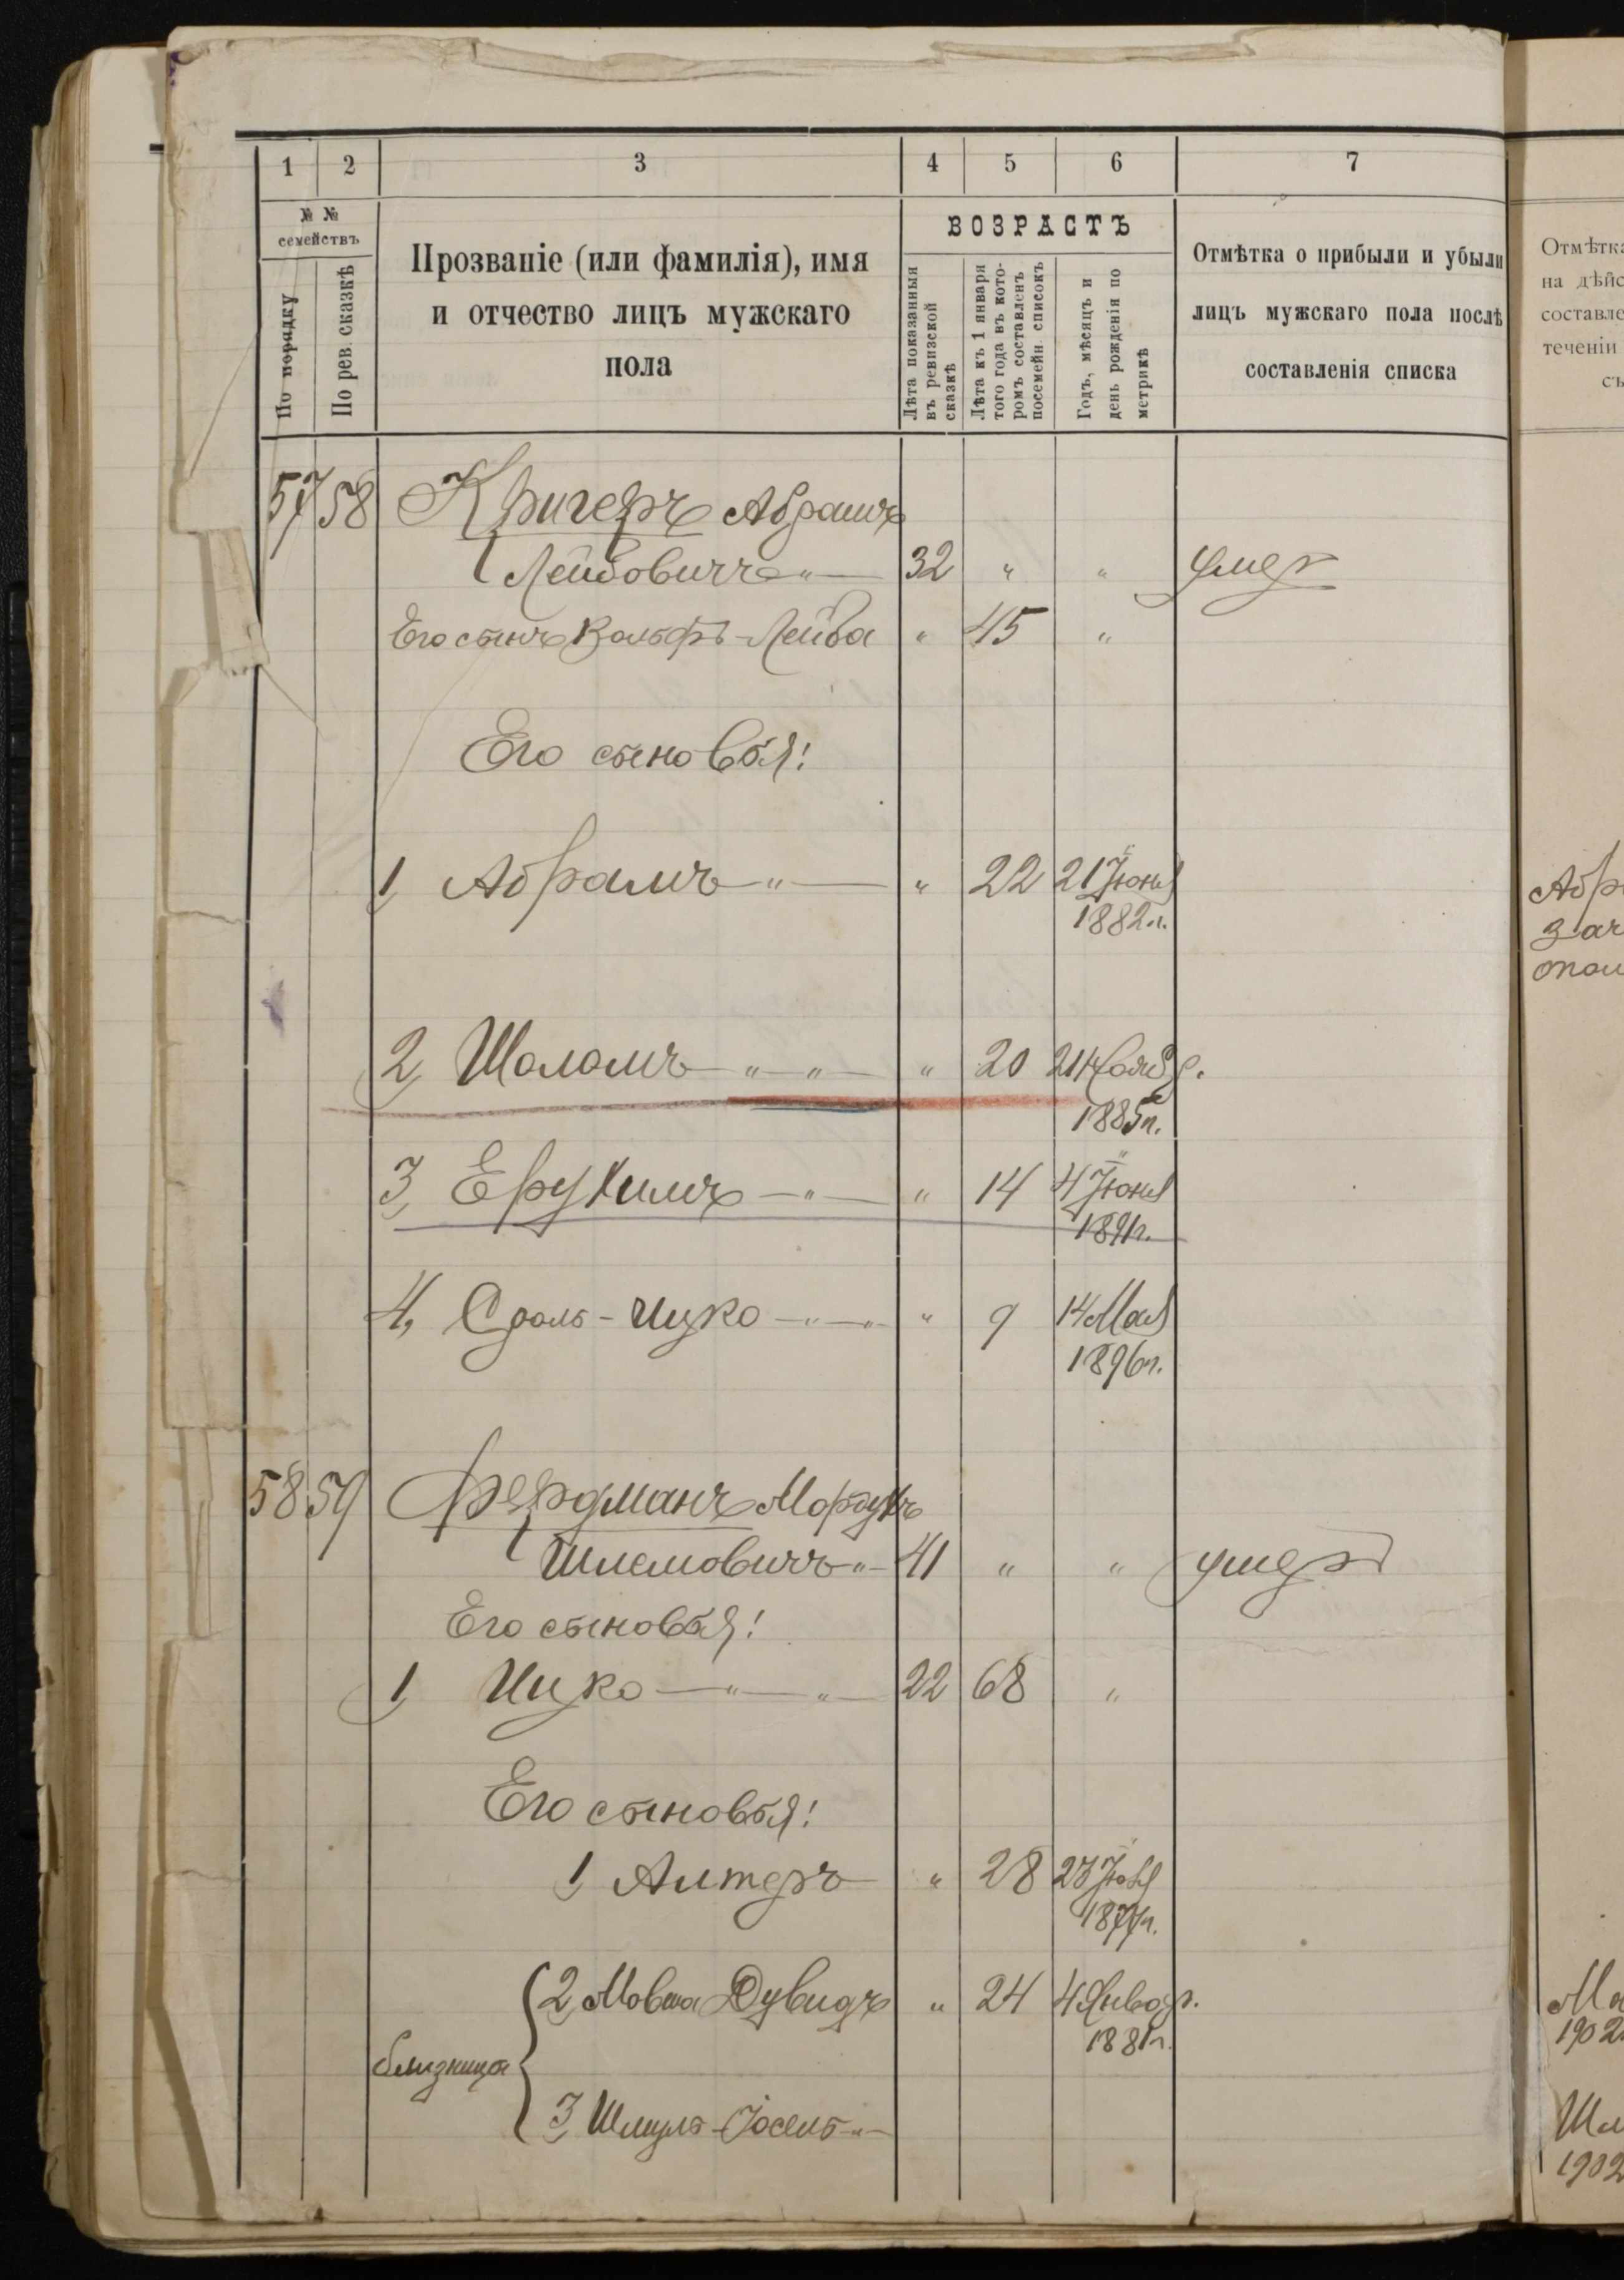 1 2 3 4 5 6 7
№ № семействъ
По порядку
По рев. сказкѣ
Прозваніе (или фамилія), имя
и отчество лицъ мужскаго
пола
ВОЗРАСТЪ
Лѣта показанныя
въ ревизской
сказкѣ
Лѣта къ 1 января
того года въ кото-
ромъ составленъ
посемейн. списокъ
Годъ, мѣсяцъ и
день рожденія по
метрикѣ
Отмѣтка о прибыли и убыли
лицъ мужскаго пола послѣ
составленія списка
57 58 Кригеръ Абрамъ
Лейбовичъ „ 32 „ „ умеръ
Его сынъ Вольфъ-Лейба „ 45 „
Его сыновья:
1, Абрамъ „ „ 22 21 Іюня
1882 г.
2, Шоломъ „ „ „ 20 21 Ноябр.
1885 г.
3, Ерухимъ „ „ 14 4 Іюня
1891 г.
4, Сроль-Ицко „ „ „ 9 14 Мая
1896 г.
58 59 Фердманъ Мордухъ
Шлемовичъ „ 41 „ „ умеръ
Его сыновья:
1, Ицко „ „ 22 68 „
Его сыновья:
1, Алтеръ „ 28 23 Іюля
1877 г.
2, Мовша Дувидъ „ 24 4 Январ.
1881 г.
близнецы
3, Шмуль-Іосель „
Отмѣтка
на дѣйс
составле
теченіи
съ
Абр
зач
опол
1902
Шм
1902